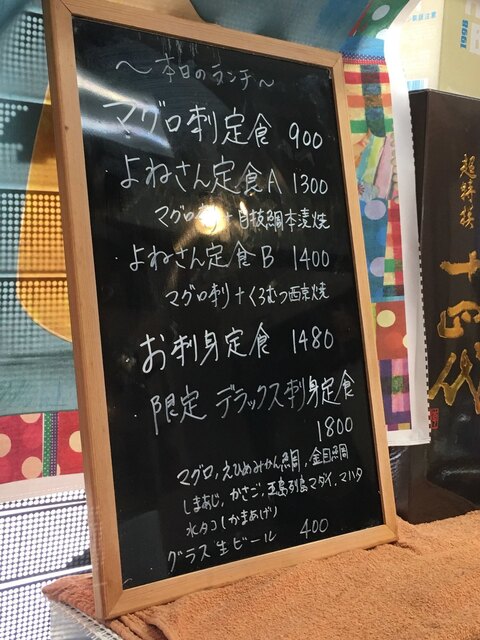 ～本日のランチ～
マグロ刺定食 900
よねさん定食A 1300
マグロ刺+目抜鯛本漬焼
よねさん定食B 1400
マグロ刺+くろむつ西京焼
お刺身定食 1480
限定 デラックス刺身定食
1800
マグロ,えひめみかん鯛,金目鯛
しまあじ,かさご,五島列島マダイ,マハタ
水タコしかまあげり
グラス生ビール 400
超特撰
十四代